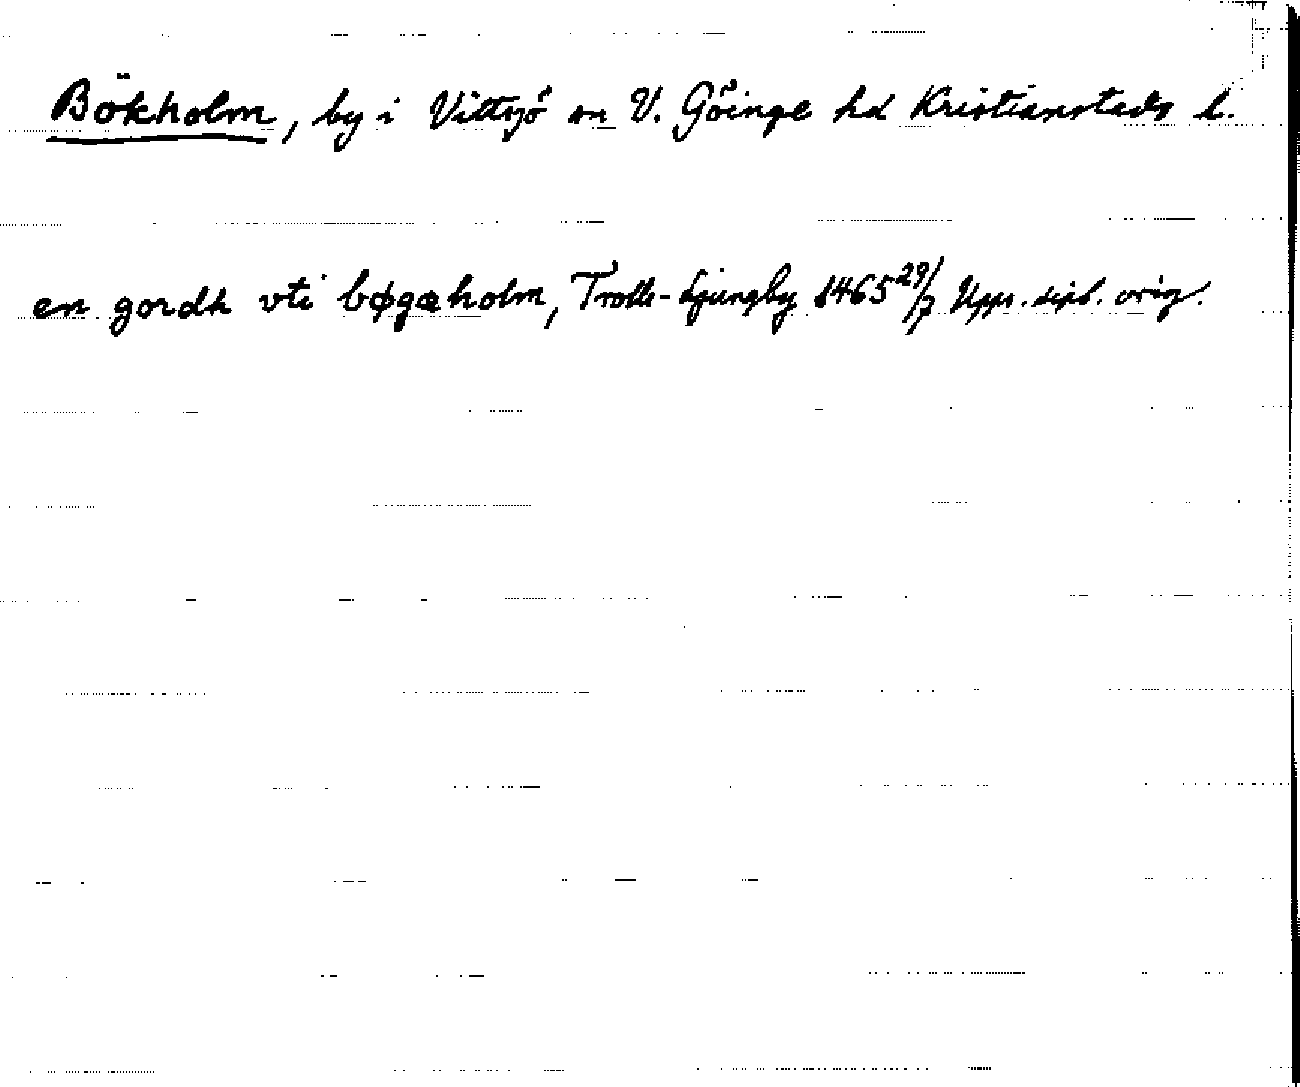 Bökholm, by i Vittsjö sn V. Göinge hd Kristianstads l.
en gordh vti bøgæholm, Trolle-Ljungby 1465 29/7 Upps. dipl. orig.